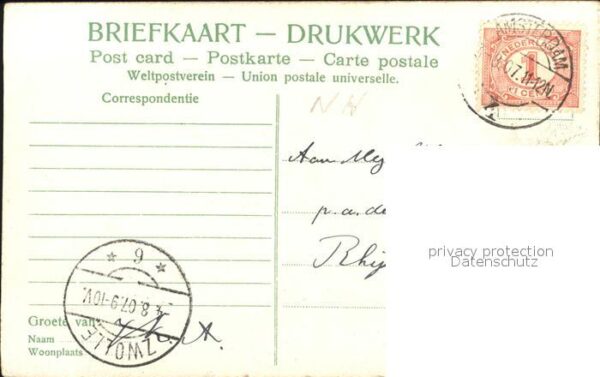 BRIEFKAART — DRUKWERK
Post card — Postkarte — Carte postale
Weltpostverein — Union postale universelle.
Correspondentie
AMSTERDAM
NEDERLAND
1
CENT
NH
Aan Mej
p.a. de
privacy protection
Datenschutz
6
8.07.9-10V.
ZWOLLE
Groete van
Naam
Woonplaats